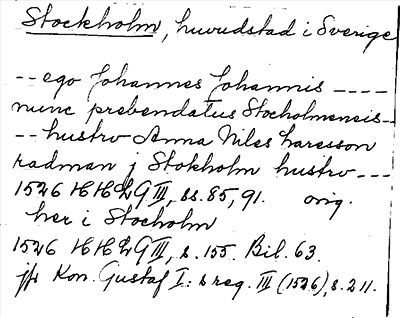 Stockholm, huvudstad i Sverige
-- ego Johannes Johannis ----
nunc prebendatus Stocholmensis--
-- hustro Anna Niles Laresson
radman j Stokholm hustro ---
1526 HH LG III, ss. 85, 91. orig.
her i Stocholm
1526 HH LG III, s. 155. Bil. 63.
jfr Kon. Gustaf I:s reg. III (1526), s. 211.